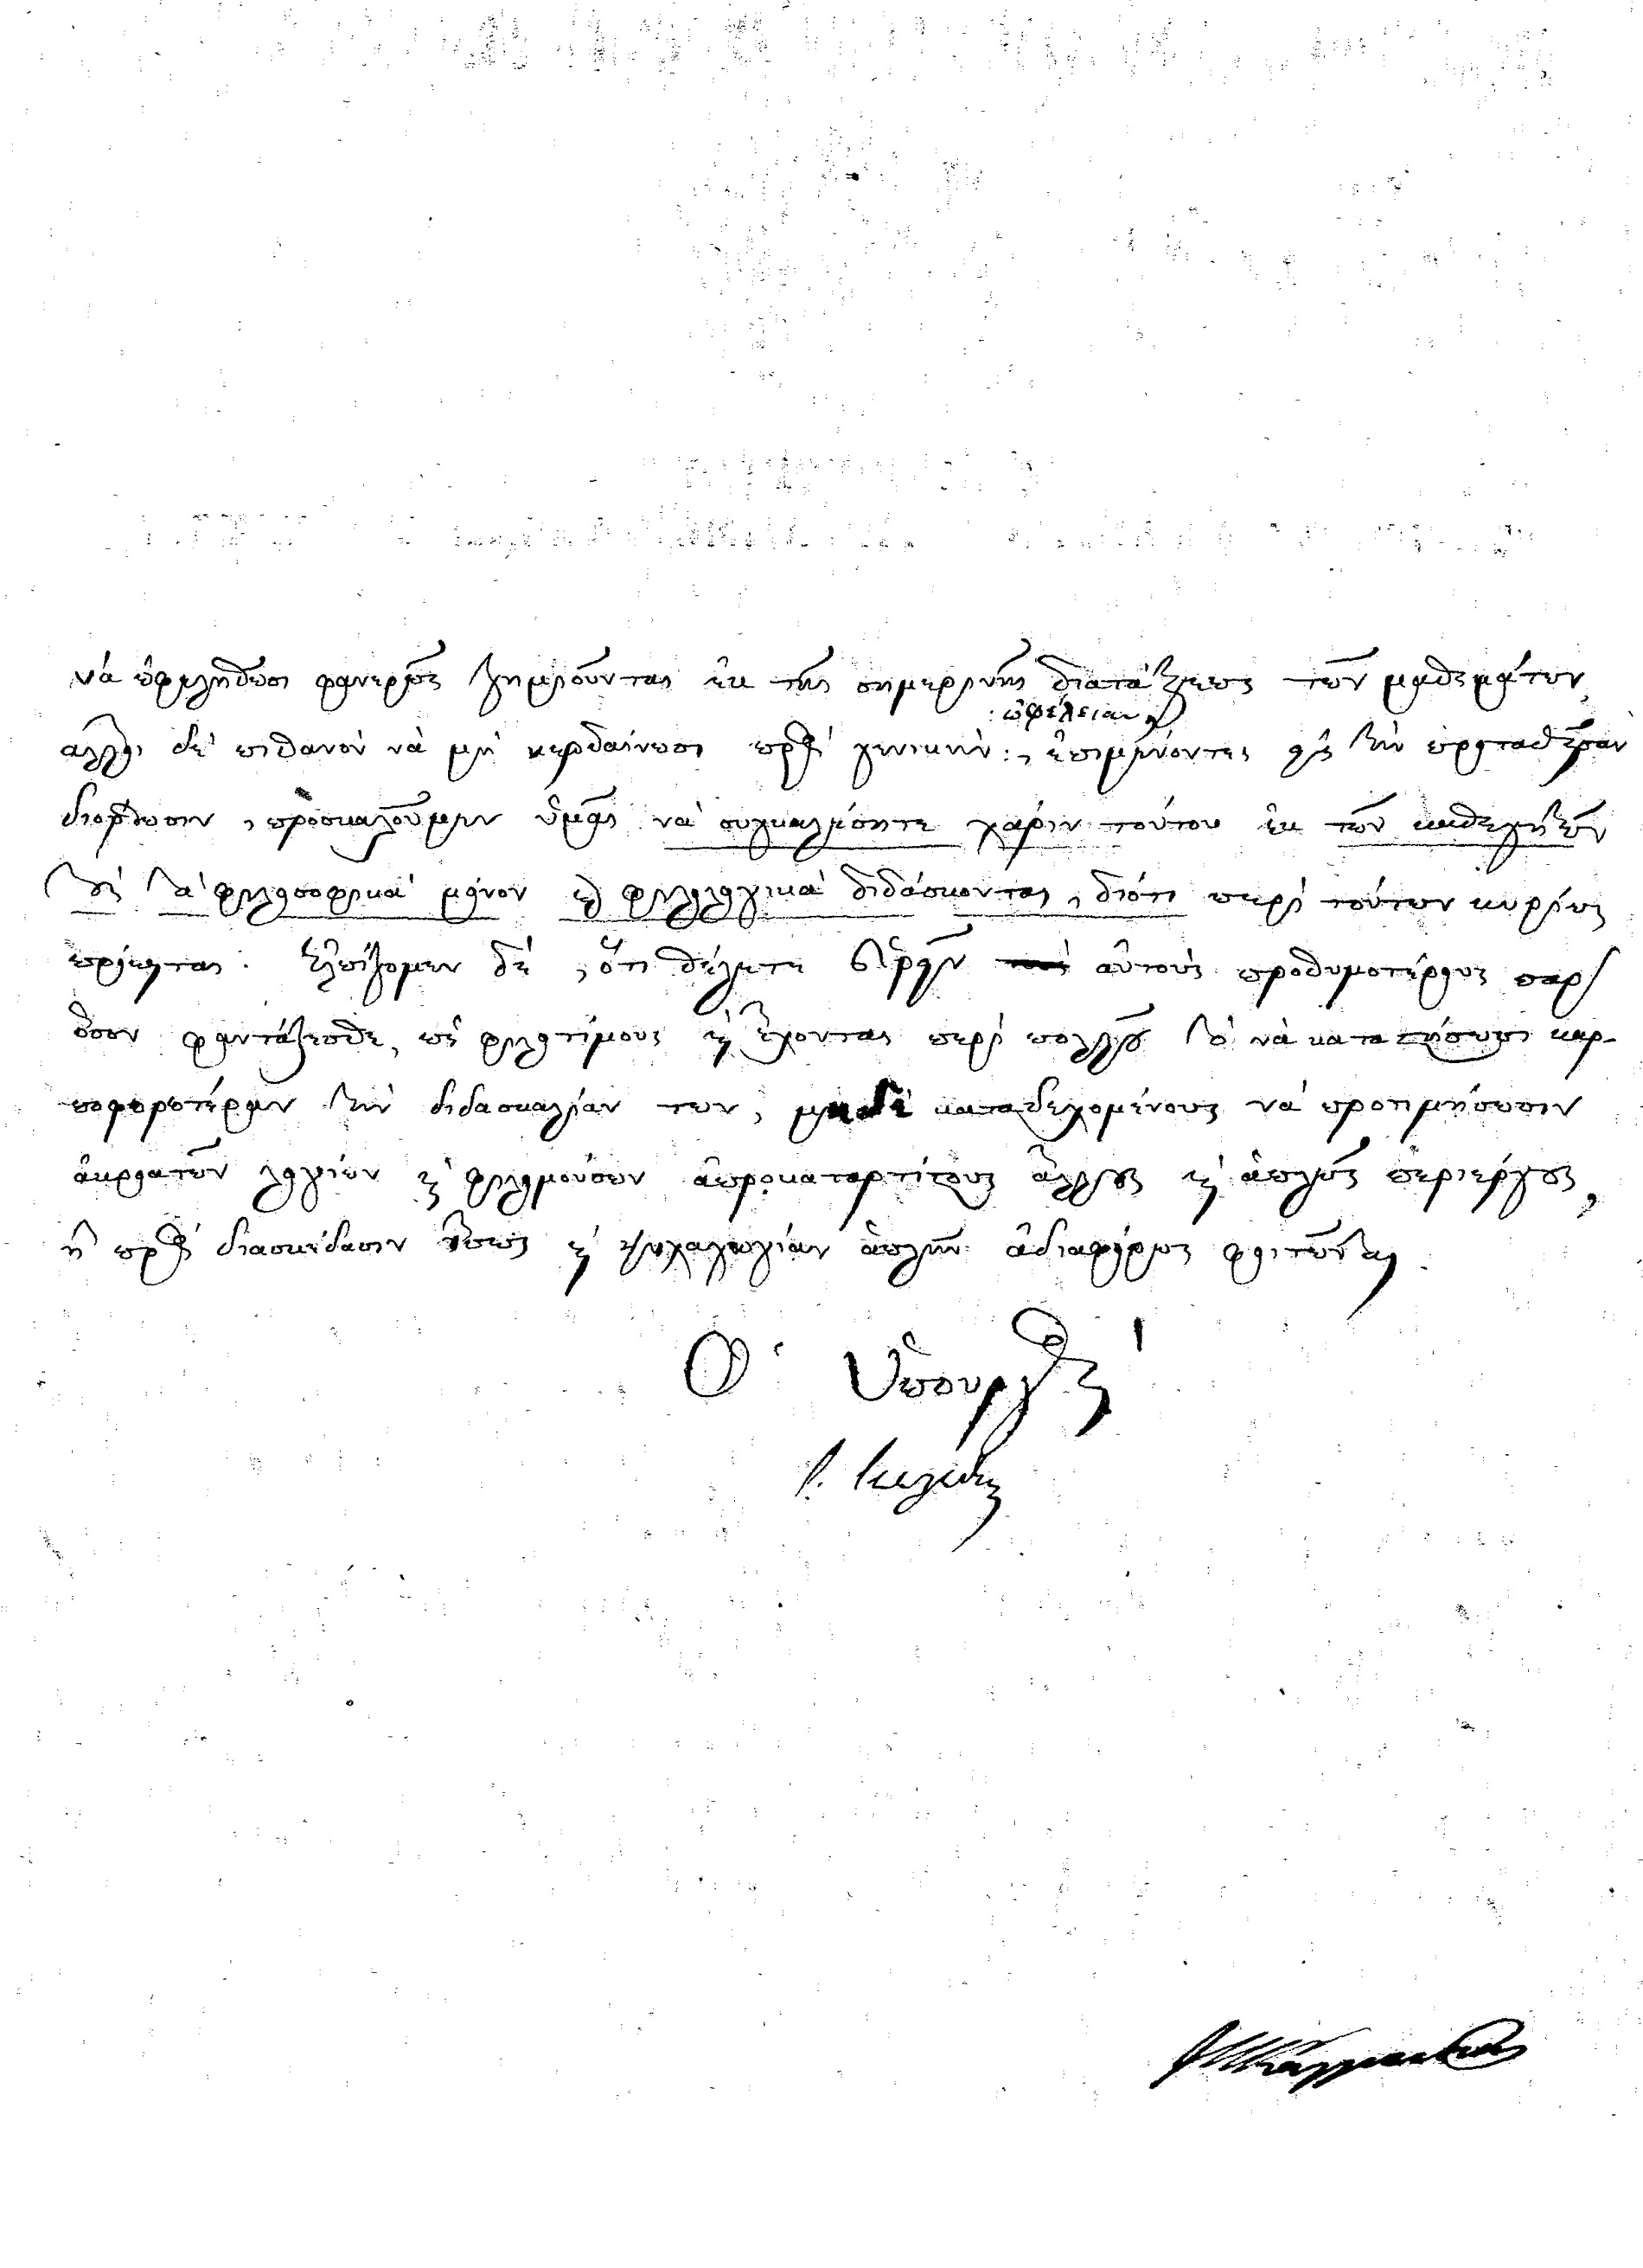 νὰ ὠφεληθῶσι φανερῶς ζημιοῦνται ἐκ τῆς σημερινῆς διατάξεως τῶν μαθημάτων,
ὠφέλειαν
ἄλλοι δὲ πιθανὸν νὰ μὴ κερδαίνωσι πρὸς γενικὴν: , ἐπιμένοντες εἰς τὴν προταθεῖσαν
διόρθωσιν, προσκαλοῦμεν ὑμᾶς νὰ συγκαλέσητε χάριν τούτου ἐκ τῶν καθηγητῶν
τοὺς τὰ φιλοσοφικὰ μόνον καὶ φιλολογικὰ διδάσκοντας, διότι περὶ τούτων κυρίως
πρόκειται. Ἐλπίζομεν δὲ, ὅτι θέλετε εὑρεῖν αὐτοὺς προθυμοτέρους παρ'
ὅσον φαντάζεσθε, ὡς φιλοτίμους καὶ ἔχοντας περὶ πολλοῦ τὸ νὰ καταστήσωσι καρ-
ποφορωτέραν τὴν διδασκαλίαν των, μηδὲ καταδεχομένους νὰ προτιμήσωσιν
ἀκροατῶν λογίων καὶ φιλομούσων ἀπροκαταρτίστους ἄλλους καὶ ἁπλῶς περιέργους,
ἢ πρὸς διασκέδασιν ἴσως καὶ ψυχαγωγίαν ἁπλῆν ἀδιαφόρως φοιτῶντας.
Ὁ Ὑπουργὸς